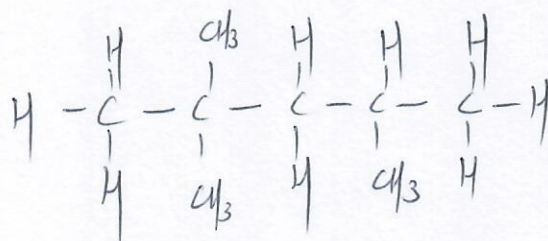 H CH3 H H H
H - C - C - C - C - C - H
H CH3 H CH3 H